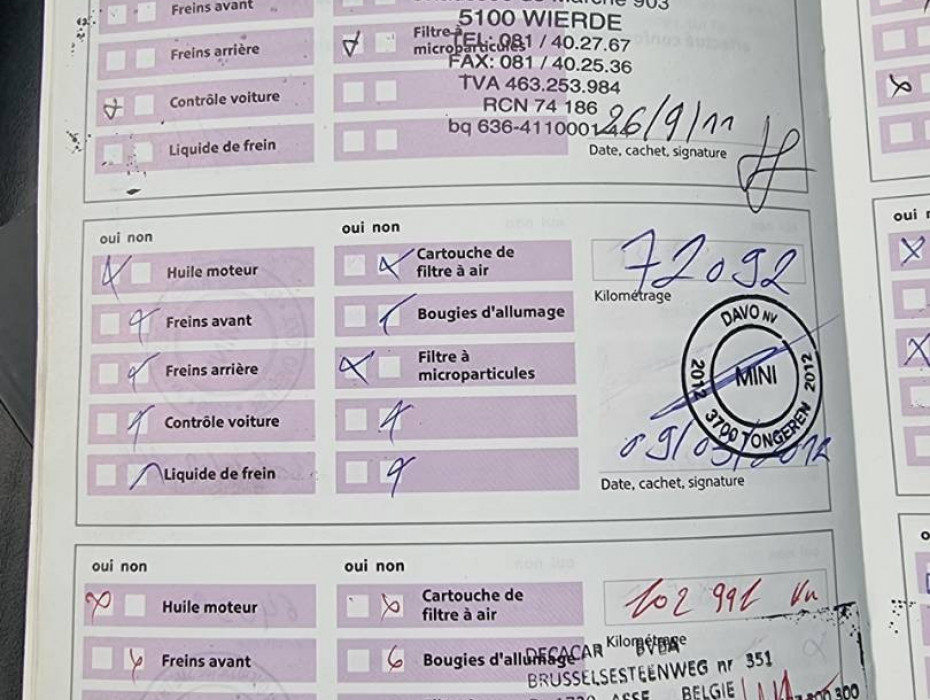 Freins avant
5100 WIERDE
Freins arrière
Filtre à
microparticules
TEL: 081 / 40.27.67
FAX: 081 / 40.25.36
Contrôle voiture
TVA 463.253.984
RCN 74 186
bq 636-4110001
26/9/11
Liquide de frein
Date, cachet, signature
oui non
oui non
oui
Huile moteur
Cartouche de
filtre à air
72092
Kilométrage
Freins avant
Bougies d'allumage
DAVO NV
Freins arrière
Filtre à
microparticules
2012 MINI 2012
Contrôle voiture
3700 TONGEREN
Liquide de frein
Date, cachet, signature
oui non
oui non
Huile moteur
Cartouche de
filtre à air
102 991
Kilométrage
Freins avant
Bougies d'allumage
DECACAR BVBA
BRUSSELSESTEENWEG nr 351
ASSE BELGIE